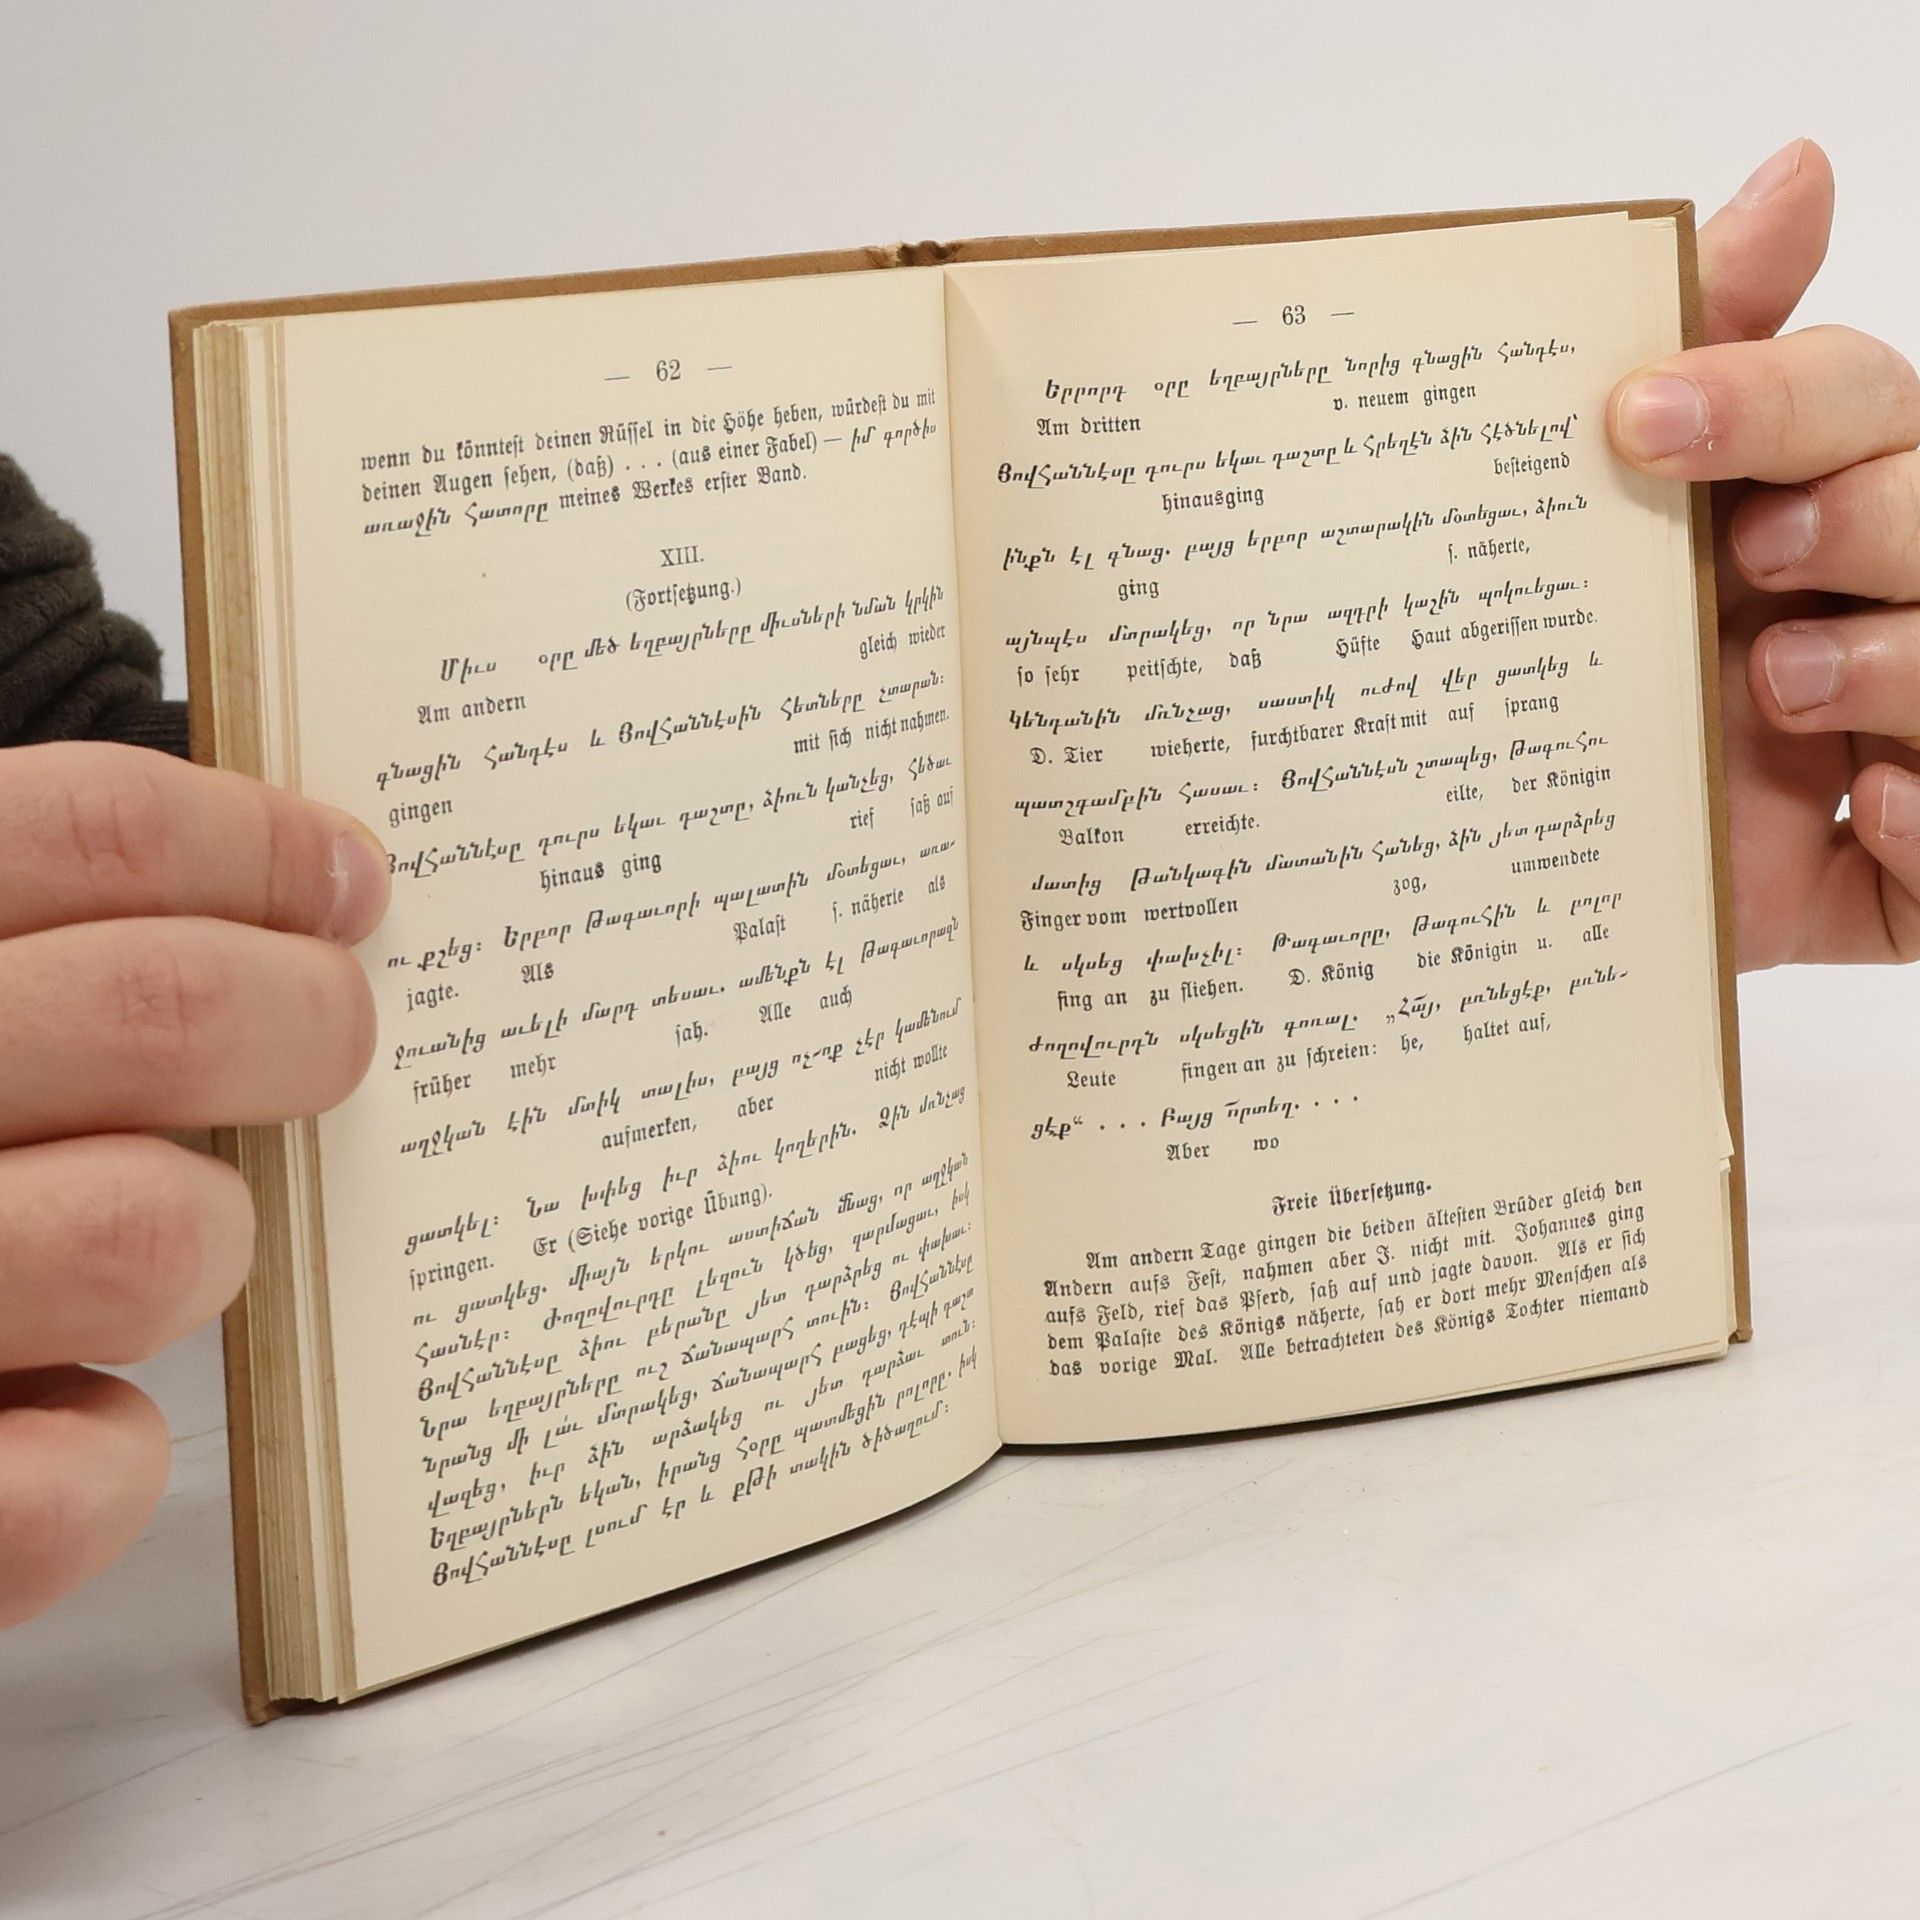 — 62 —
wenn du könntest deinen Rüssel in die Höhe heben, würdest du mit
deinen Augen sehen, (daß) . . . (aus einer Fabel) — իմ գործիս
առաջին հատորը meines Werkes erster Band.
XIII.
(Fortsetzung.)
Միւս օրը մեծ եղբայրները միւսների նման կրկին
Am andern gleich wieder
գնացին հանդէս և Յովհաննէսին հետները չտարան։
gingen mit sich nicht nahmen.
Յովհաննէսը դուրս եկաւ դաշտը, ձիուն կանչեց, հեծաւ
hinaus ging rief saß auf
ու քշեց։ Երբոր թագաւորի պալատին մօտեցաւ, առա-
jagte. Als Palast s. näherte als
ջուանից աւելի մարդ տեսաւ. ամենքն էլ թագաւորազն
früher mehr sah. Alle auch
աղջկան էին մտիկ տալիս, բայց ոչ-ոք չէր կամենում
aufmerken, aber nicht wollte
ցատկել։ Նա խփեց իւր ձիու կողերին. Ձին մռնչաց
springen. Er (Siehe vorige Übung).
ու ցատկեց. միայն երկու աստիճան մնաց, որ աղջկան
հասնէր։ Ժողովուրդը լեզուն կծեց, զարմացաւ, իսկ
Յովհաննէսը ձիու բերանը յետ դարձրեց ու փախաւ։
Նրա եղբայրները ուշ ճանապարհ տուին։ Յովհաննէսը
նրանց մի լա՛ւ մտրակեց, ճանապարհ բացեց, դէպի դաշտ
վազեց, իւր ձին արձակեց ու յետ դարձաւ տուն։
Եղբայրներն եկան, իրանց հօրը պատմեցին բոլորը. իսկ
Յովհաննէսը լսում էր և քթի տակին ծիծաղում։
— 63 —
Երրորդ օրը եղբայրները նորից գնացին հանդէս,
Am dritten v. neuem gingen
Յովհաննէսը դուրս եկաւ դաշտը և հրեղէն ձին հէծնելով՝
hinausging besteigend
ինքն էլ գնաց. բայց երբոր աշտարակին մօտեցաւ, ձիուն
ging s. näherte,
այնպէս մտրակեց, որ նրա ազդրի կաշին պոկուեցաւ։
so sehr peitschte, daß Hüfte Haut abgerissen wurde.
Կենդանին մռնչաց, սաստիկ ուժով վեր ցատկեց և
D. Tier wieherte, furchtbarer Kraft mit auf sprang
պատշգամբին հասաւ։ Յովհաննէսն շտապեց, թագուհու
Balkon erreichte. eilte, der Königin
մատից թանկագին մատանին հանեց, ձին յետ դարձրեց
Finger vom wertvollen zog, umwendete
և սկսեց փախչիլ։ Թագաւորը, թագուհին և բոլոր
fing an zu fliehen. D. König die Königin u. alle
ժողովուրդն սկսեցին գոռալ. „Հա՜յ, բռնեցէք, բռնե-
Leute fingen an zu schreien: he, haltet auf,
ցէք“ . . . Բայց ո՜րտեղ. . . .
Aber wo
Freie Übersetzung.
Am andern Tage gingen die beiden ältesten Brüder gleich den
Andern aufs Fest, nahmen aber J. nicht mit. Johannes ging
aufs Feld, rief das Pferd, saß auf und jagte davon. Als er sich
dem Palaste des Königs näherte, sah er dort mehr Menschen als
das vorige Mal. Alle betrachteten des Königs Tochter niemand